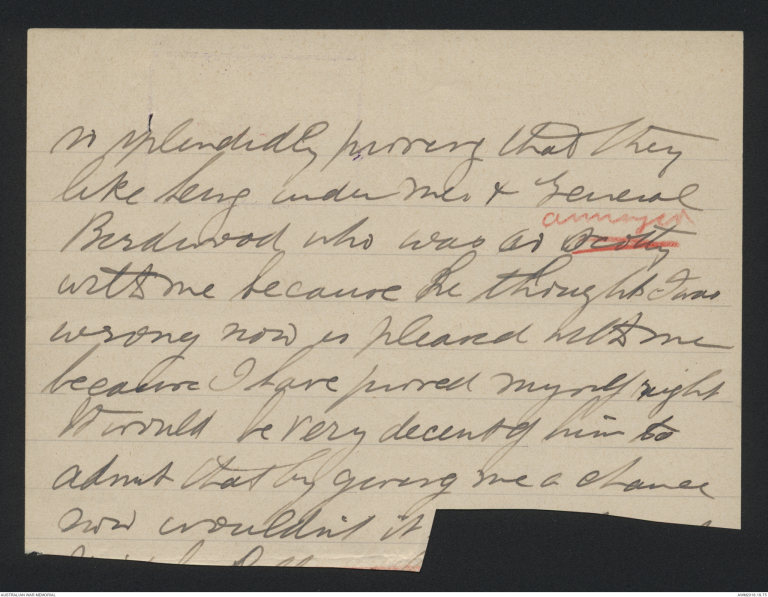 so splendidly proving that they
like being under me. & General
annoyed
Birdwood who was so scotty
with me because he thought I was
wrong now is pleased with me
because I have proved myself right
It would be very decent of him to
admit that by giving me a chance
now wouldn't it
AUSTRALIAN WAR MEMORIAL